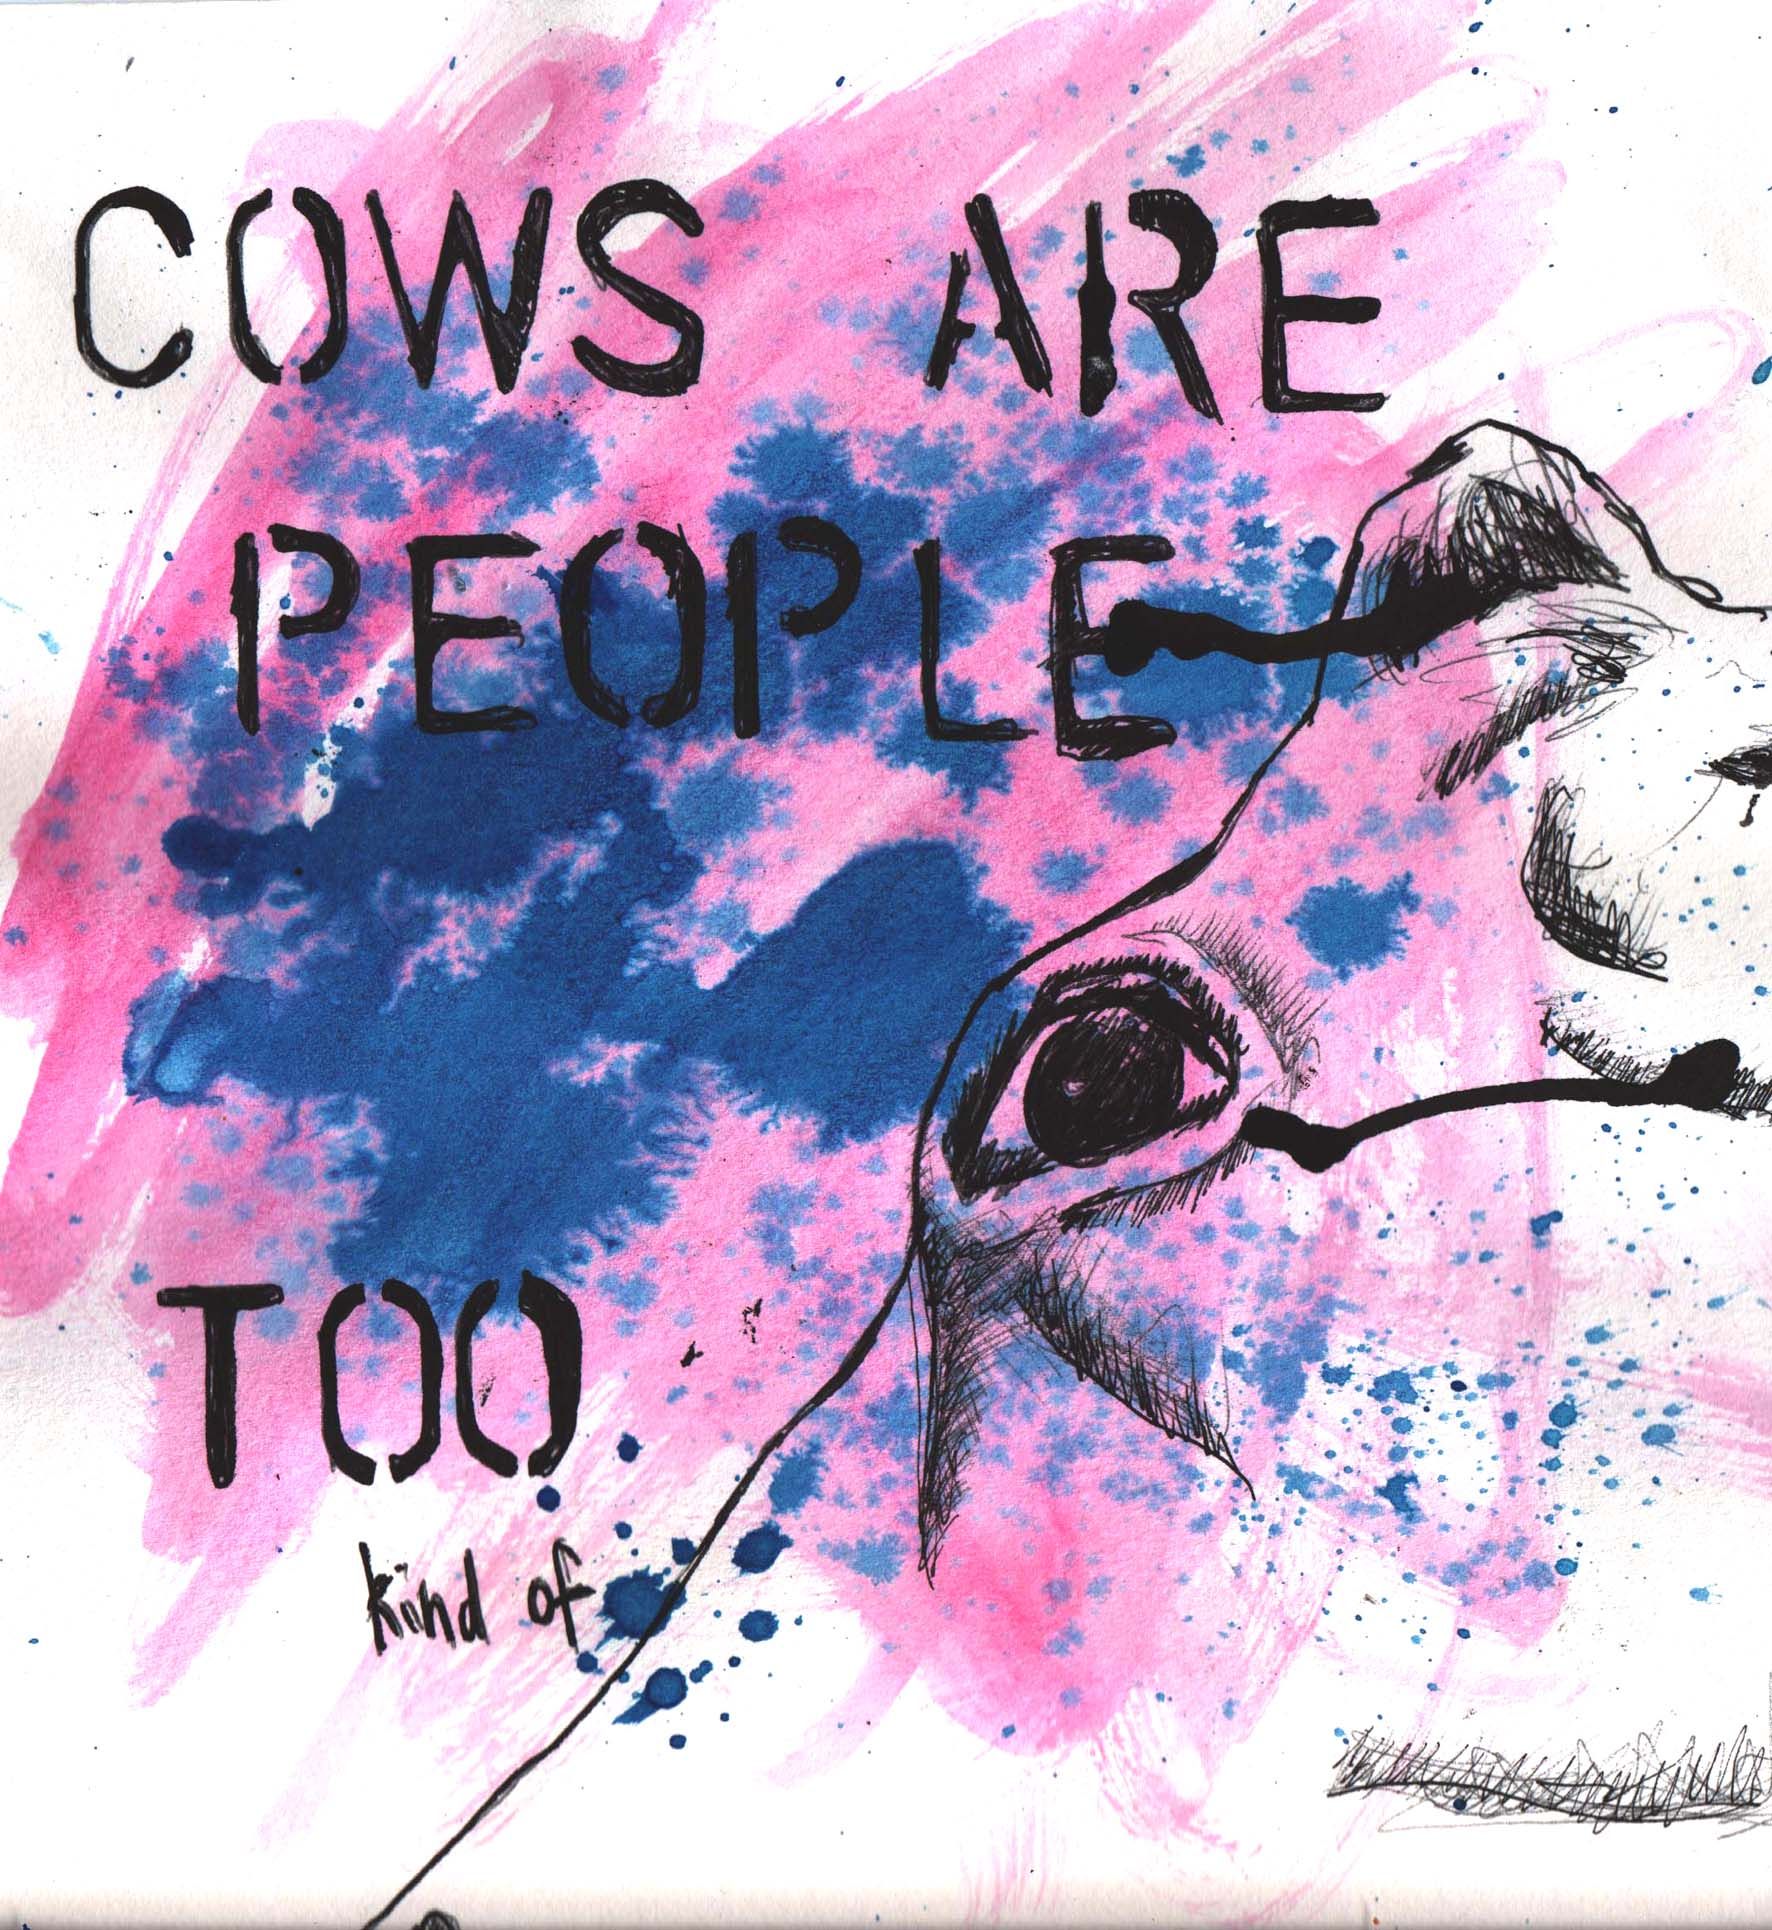 COWS ARE
PEOPLE
TOO
kind of